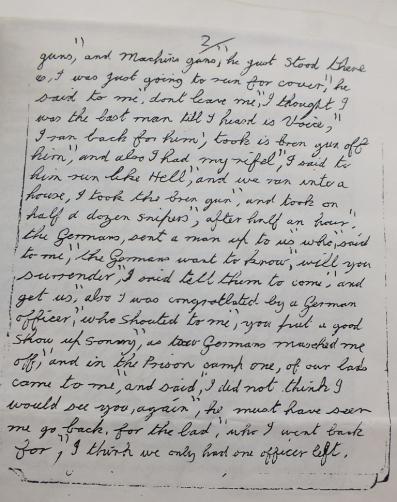 2/
guns," and Machine guns," he just stood there
so, I was just going to run for cover," he
said to me," dont leave me," I thought I
was the last man till I heard is Voice,"
I ran back for him," took is bren gun off
him," and also I had my rifel," I said to
him run like Hell," and we ran into a
house, I took the bren gun," and took on
half a dozen snipers," after half an hour,"
the Germans, sent a man up to us" who," said
to me," the Germans want to know," will you
surrender," I said tell them to come," and
get us," also I was congratlated by a German
officer," who shouted to me," you put a good
show up sonny," as two Germans marched me
off," and in the Prison camp one, of our lads
came to me," and said," I did not think I
would see you, again", he must have seen
me go back. for the lad," who I went back
for," I think we only had one officer left.